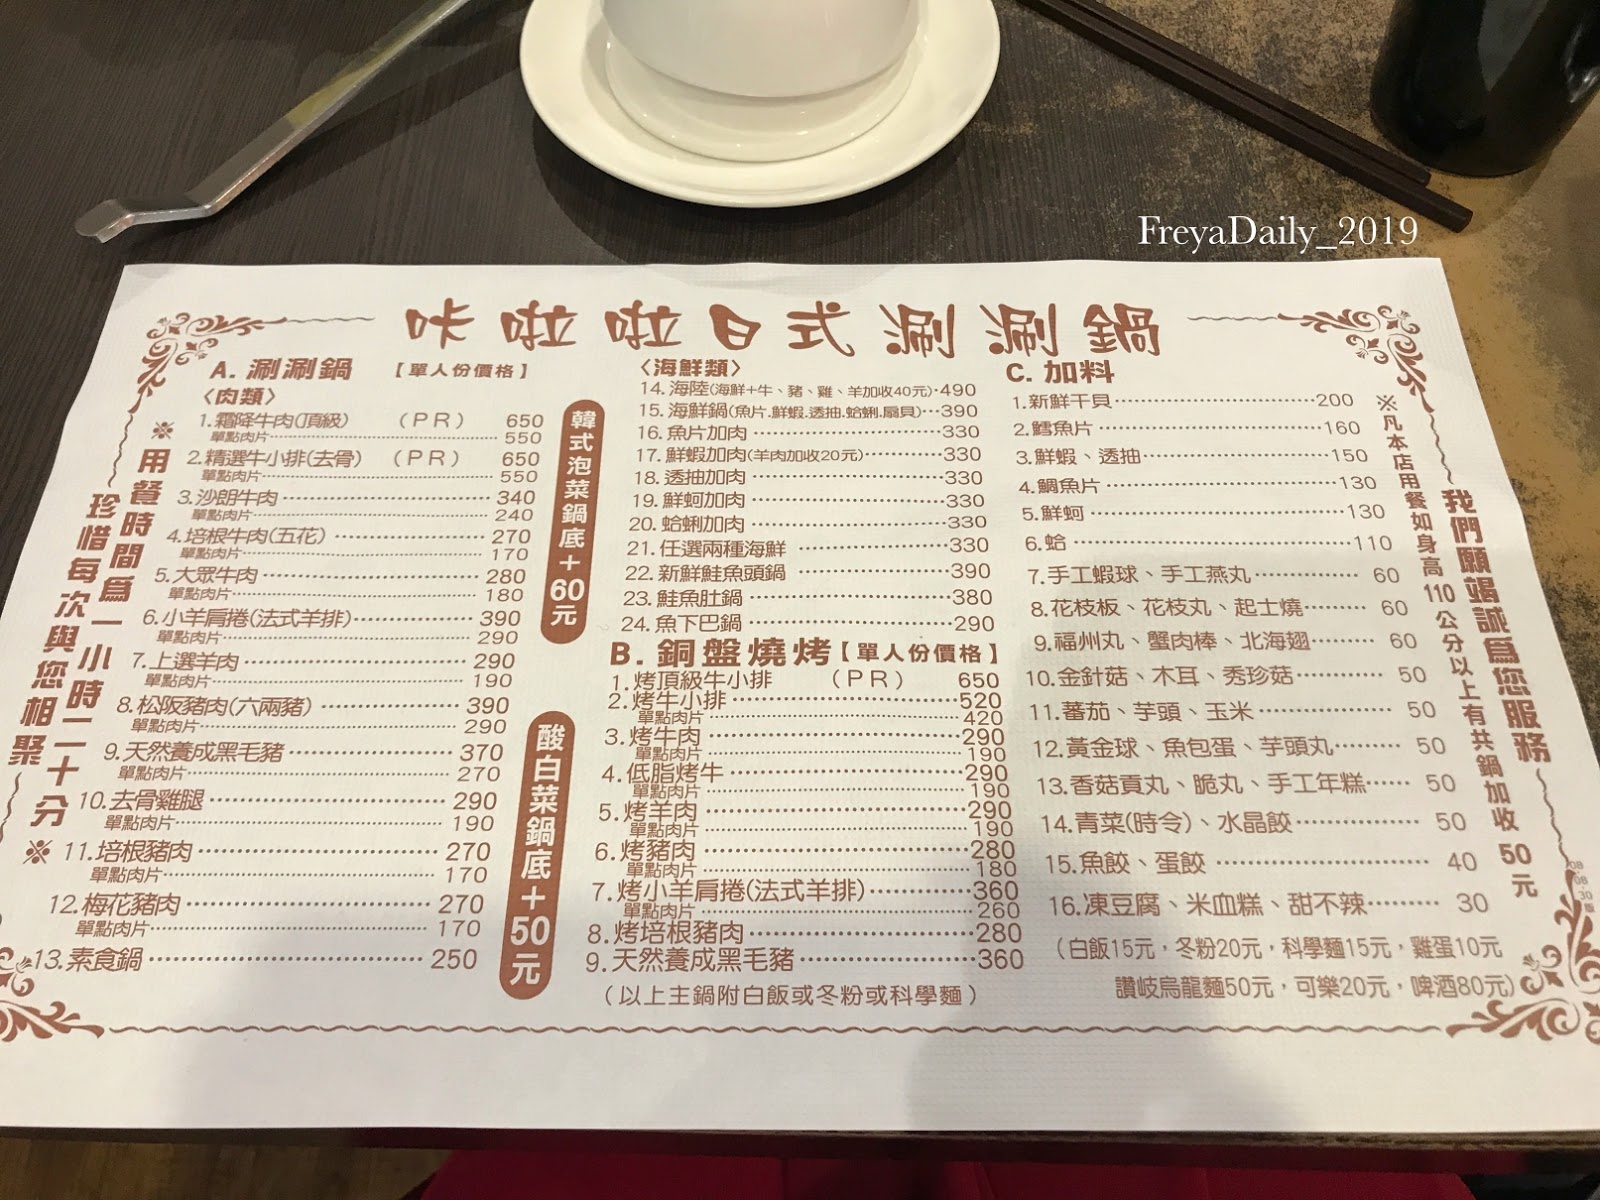 FreyaDaily_2019
咔啦啦日式涮涮鍋
A. 涮涮鍋 【單人份價格】
〈肉類〉
1.霜降牛肉(頂級) (PR) 650
單點肉片 550
2.精選牛小排(去骨) (PR) 650
單點肉片 550
3.沙朗牛肉 340
單點肉片 240
4.培根牛肉(五花) 270
單點肉片 170
5.大眾牛肉 280
單點肉片 180
6.小羊肩捲(法式羊排) 390
單點肉片 290
7.上選羊肉 290
單點肉片 190
8.松阪豬肉(六兩豬) 390
單點肉片 290
9.天然養成黑毛豬 370
單點肉片 270
10.去骨雞腿 290
單點肉片 190
11.培根豬肉 270
單點肉片 170
12.梅花豬肉 270
單點肉片 170
13.素食鍋 250
※用餐時間為一小時二十分※
珍惜每次與您相聚
韓式泡菜鍋底+60元
酸白菜鍋底+50元
〈海鮮類〉
14.海陸(海鮮+牛、豬、雞、羊加收40元)·490
15.海鮮鍋(魚片.鮮蝦.透抽.蛤蜊.扇貝)…390
16.魚片加肉 330
17.鮮蝦加肉(羊肉加收20元) 330
18.透抽加肉 330
19.鮮蚵加肉 330
20.蛤蜊加肉 330
21.任選兩種海鮮 330
22.新鮮鮭魚頭鍋 390
23.鮭魚肚鍋 380
24.魚下巴鍋 290
B. 銅盤燒烤【單人份價格】
1.烤頂級牛小排 (PR) 650
2.烤牛小排 520
單點肉片 420
3.烤牛肉 290
單點肉片 190
4.低脂烤牛 290
單點肉片 190
5.烤羊肉 290
單點肉片 190
6.烤豬肉 280
單點肉片 180
7.烤小羊肩捲(法式羊排) 360
單點肉片 260
8.烤培根豬肉 280
9.天然養成黑毛豬 360
(以上主鍋附白飯或冬粉或科學麵)
C. 加料
1.新鮮干貝 200
2.鱈魚片 160
3.鮮蝦、透抽 150
4.鯛魚片 130
5.鮮蚵 130
6.蛤 110
7.手工蝦球、手工燕丸 60
8.花枝板、花枝丸、起士燒 60
9.福州丸、蟹肉棒、北海翅 60
10.金針菇、木耳、秀珍菇 50
11.蕃茄、芋頭、玉米 50
12.黃金球、魚包蛋、芋頭丸 50
13.香菇貢丸、脆丸、手工年糕 50
14.青菜(時令)、水晶餃 50
15.魚餃、蛋餃 40
16.凍豆腐、米血糕、甜不辣 30
(白飯15元,冬粉20元,科學麵15元,雞蛋10元
讚岐烏龍麵50元,可樂20元,啤酒80元)
※凡本店用餐如身高110公分以上有共鍋加收50元
我們願竭誠為您服務